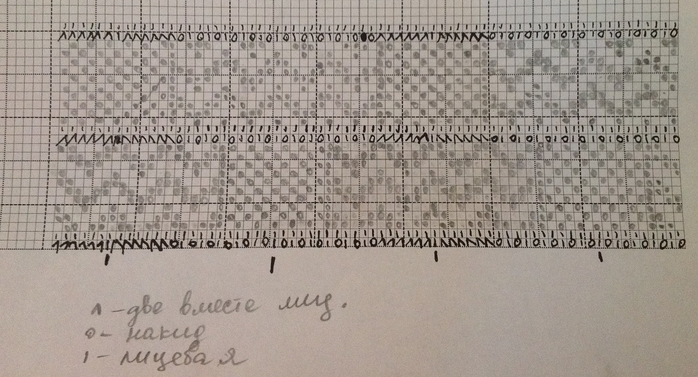 ∧ - две вместе лиц.
o - накид
ı - лицевая